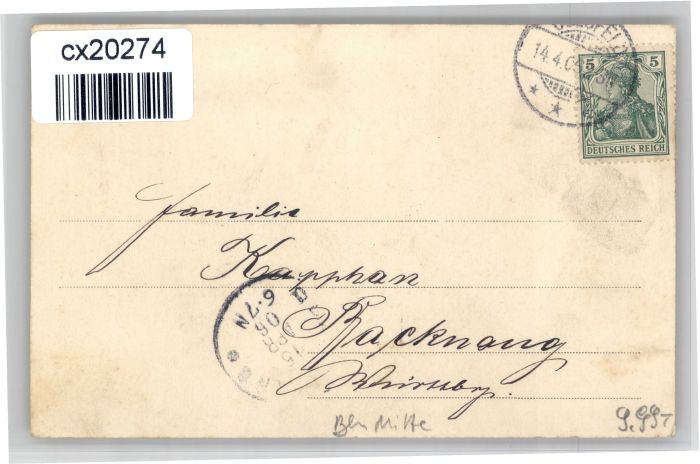 cx20274
14.4.0
5 5
DEUTSCHES REICH
Familie
Kapphan
Backnang
Württbg.
6-7N
Bln Mitte